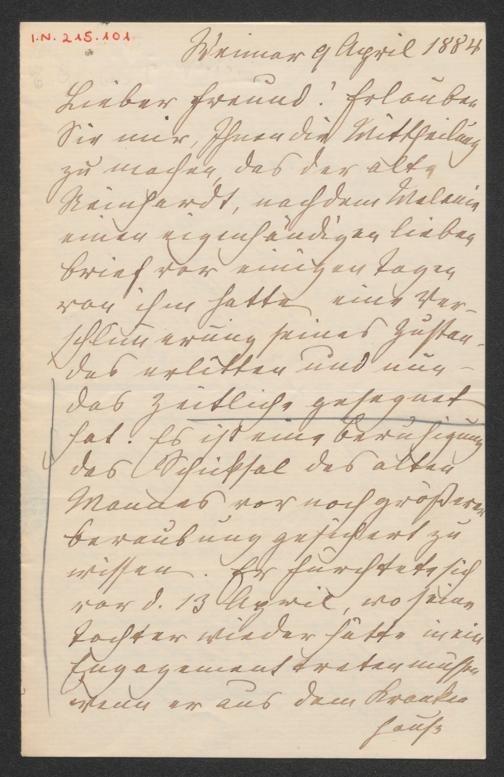 I.N. 215.101
Weimar 9 April 1884
Lieber Freund! Erlauben
Sie mir, Ihnen die Mittheilung
zu machen, das der alte
Reinhardt, nachdem Melanie
einen eigenhändigen lieben
Brief vor einigen Tagen
von ihm hatte eine Ver-
schlimerung seines Zustan-
des erlitten und nun –
das Zeitliche gesegnet
hat. Es ist eine Beruhigung
das Schicksal des alten
Mannes vor noch größerer
Beraubung gesichert zu
wissen. Er fürchtete sich
vor d. 13 April, wo seine
Tochter wieder hätte in ein
Engagement treten müssen
wenn er aus dem Kranken
hause